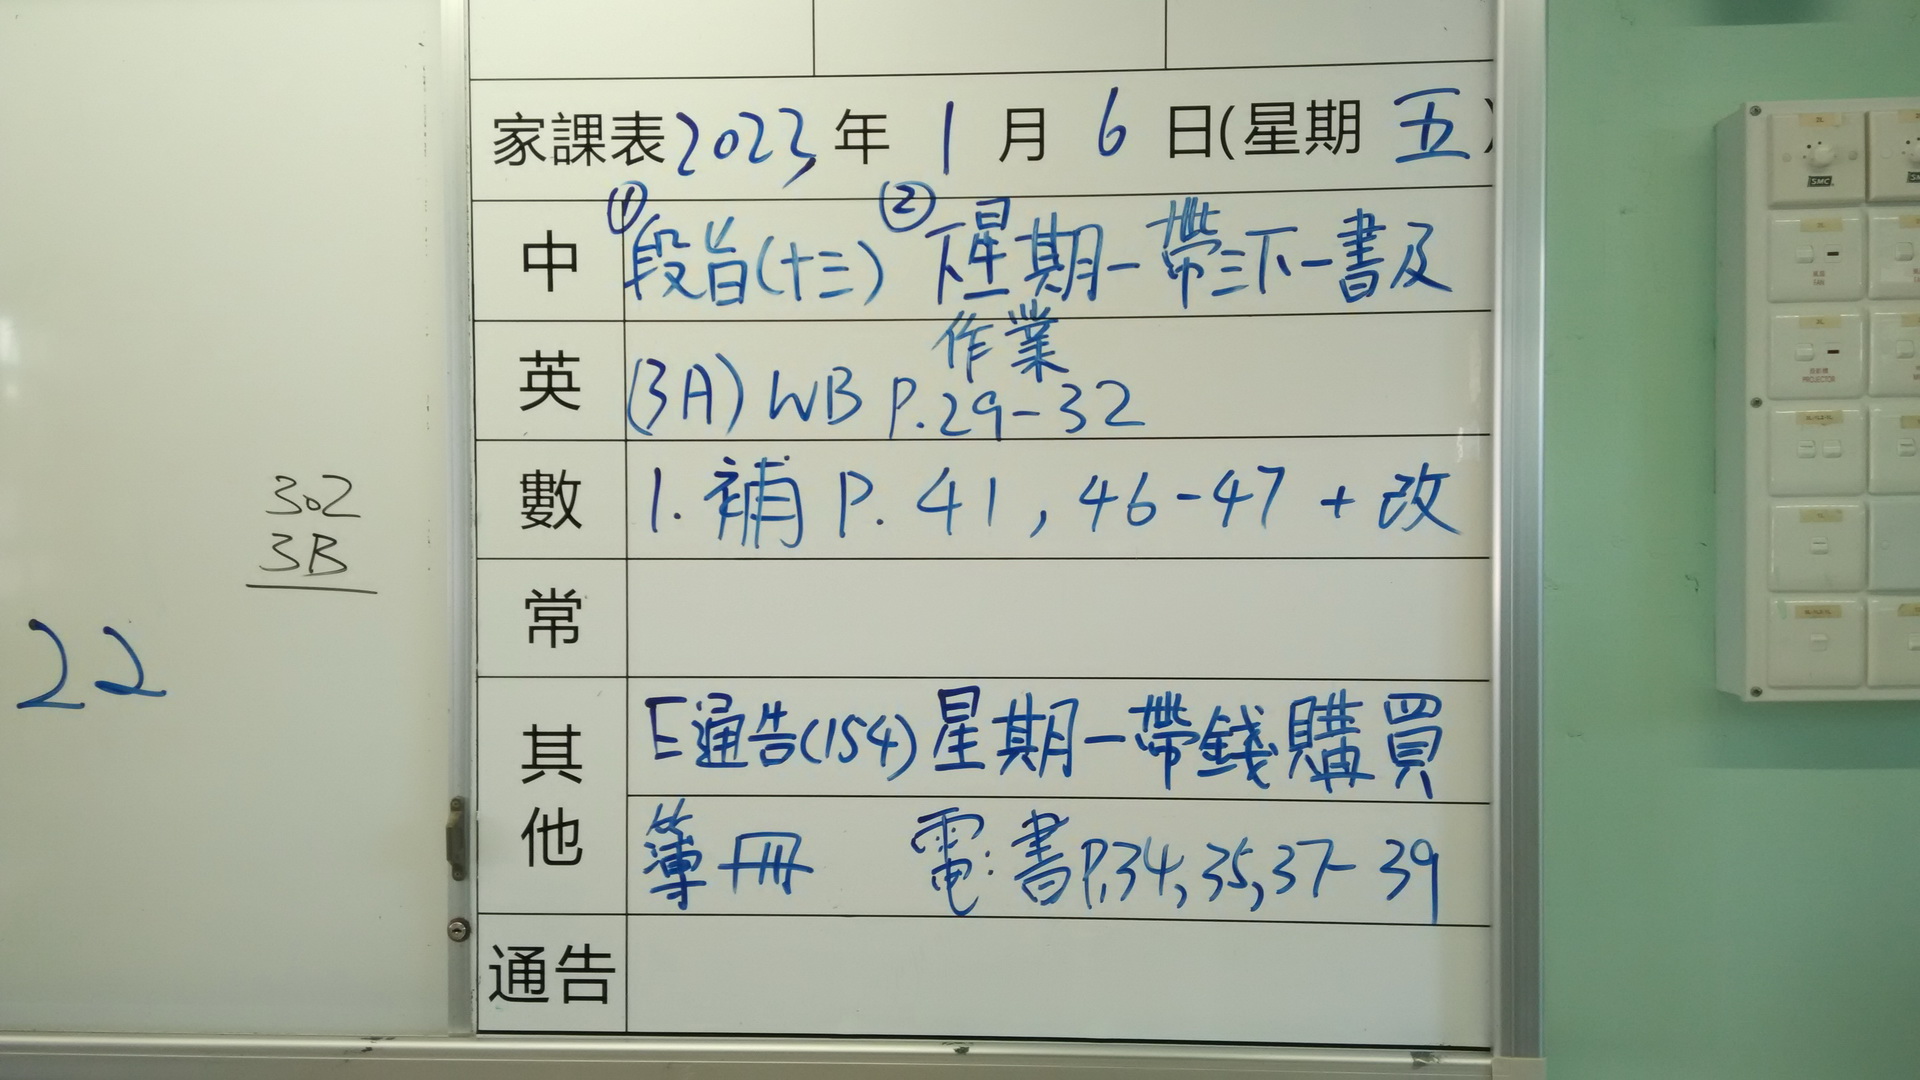 家課表 2023 年 1 月 6 日(星期 五)
中 ① 段旨(十三) ② 下星期一帶三下一書及
作業
英 (3A) WB P.29-32
數 1. 補 P. 41, 46-47 + 改
常
其他 E通告(154) 星期一帶錢購買
簿冊 電: 書P.34, 35, 37-39
通告
302
3B
22
SMC
FAN
PROJECTOR